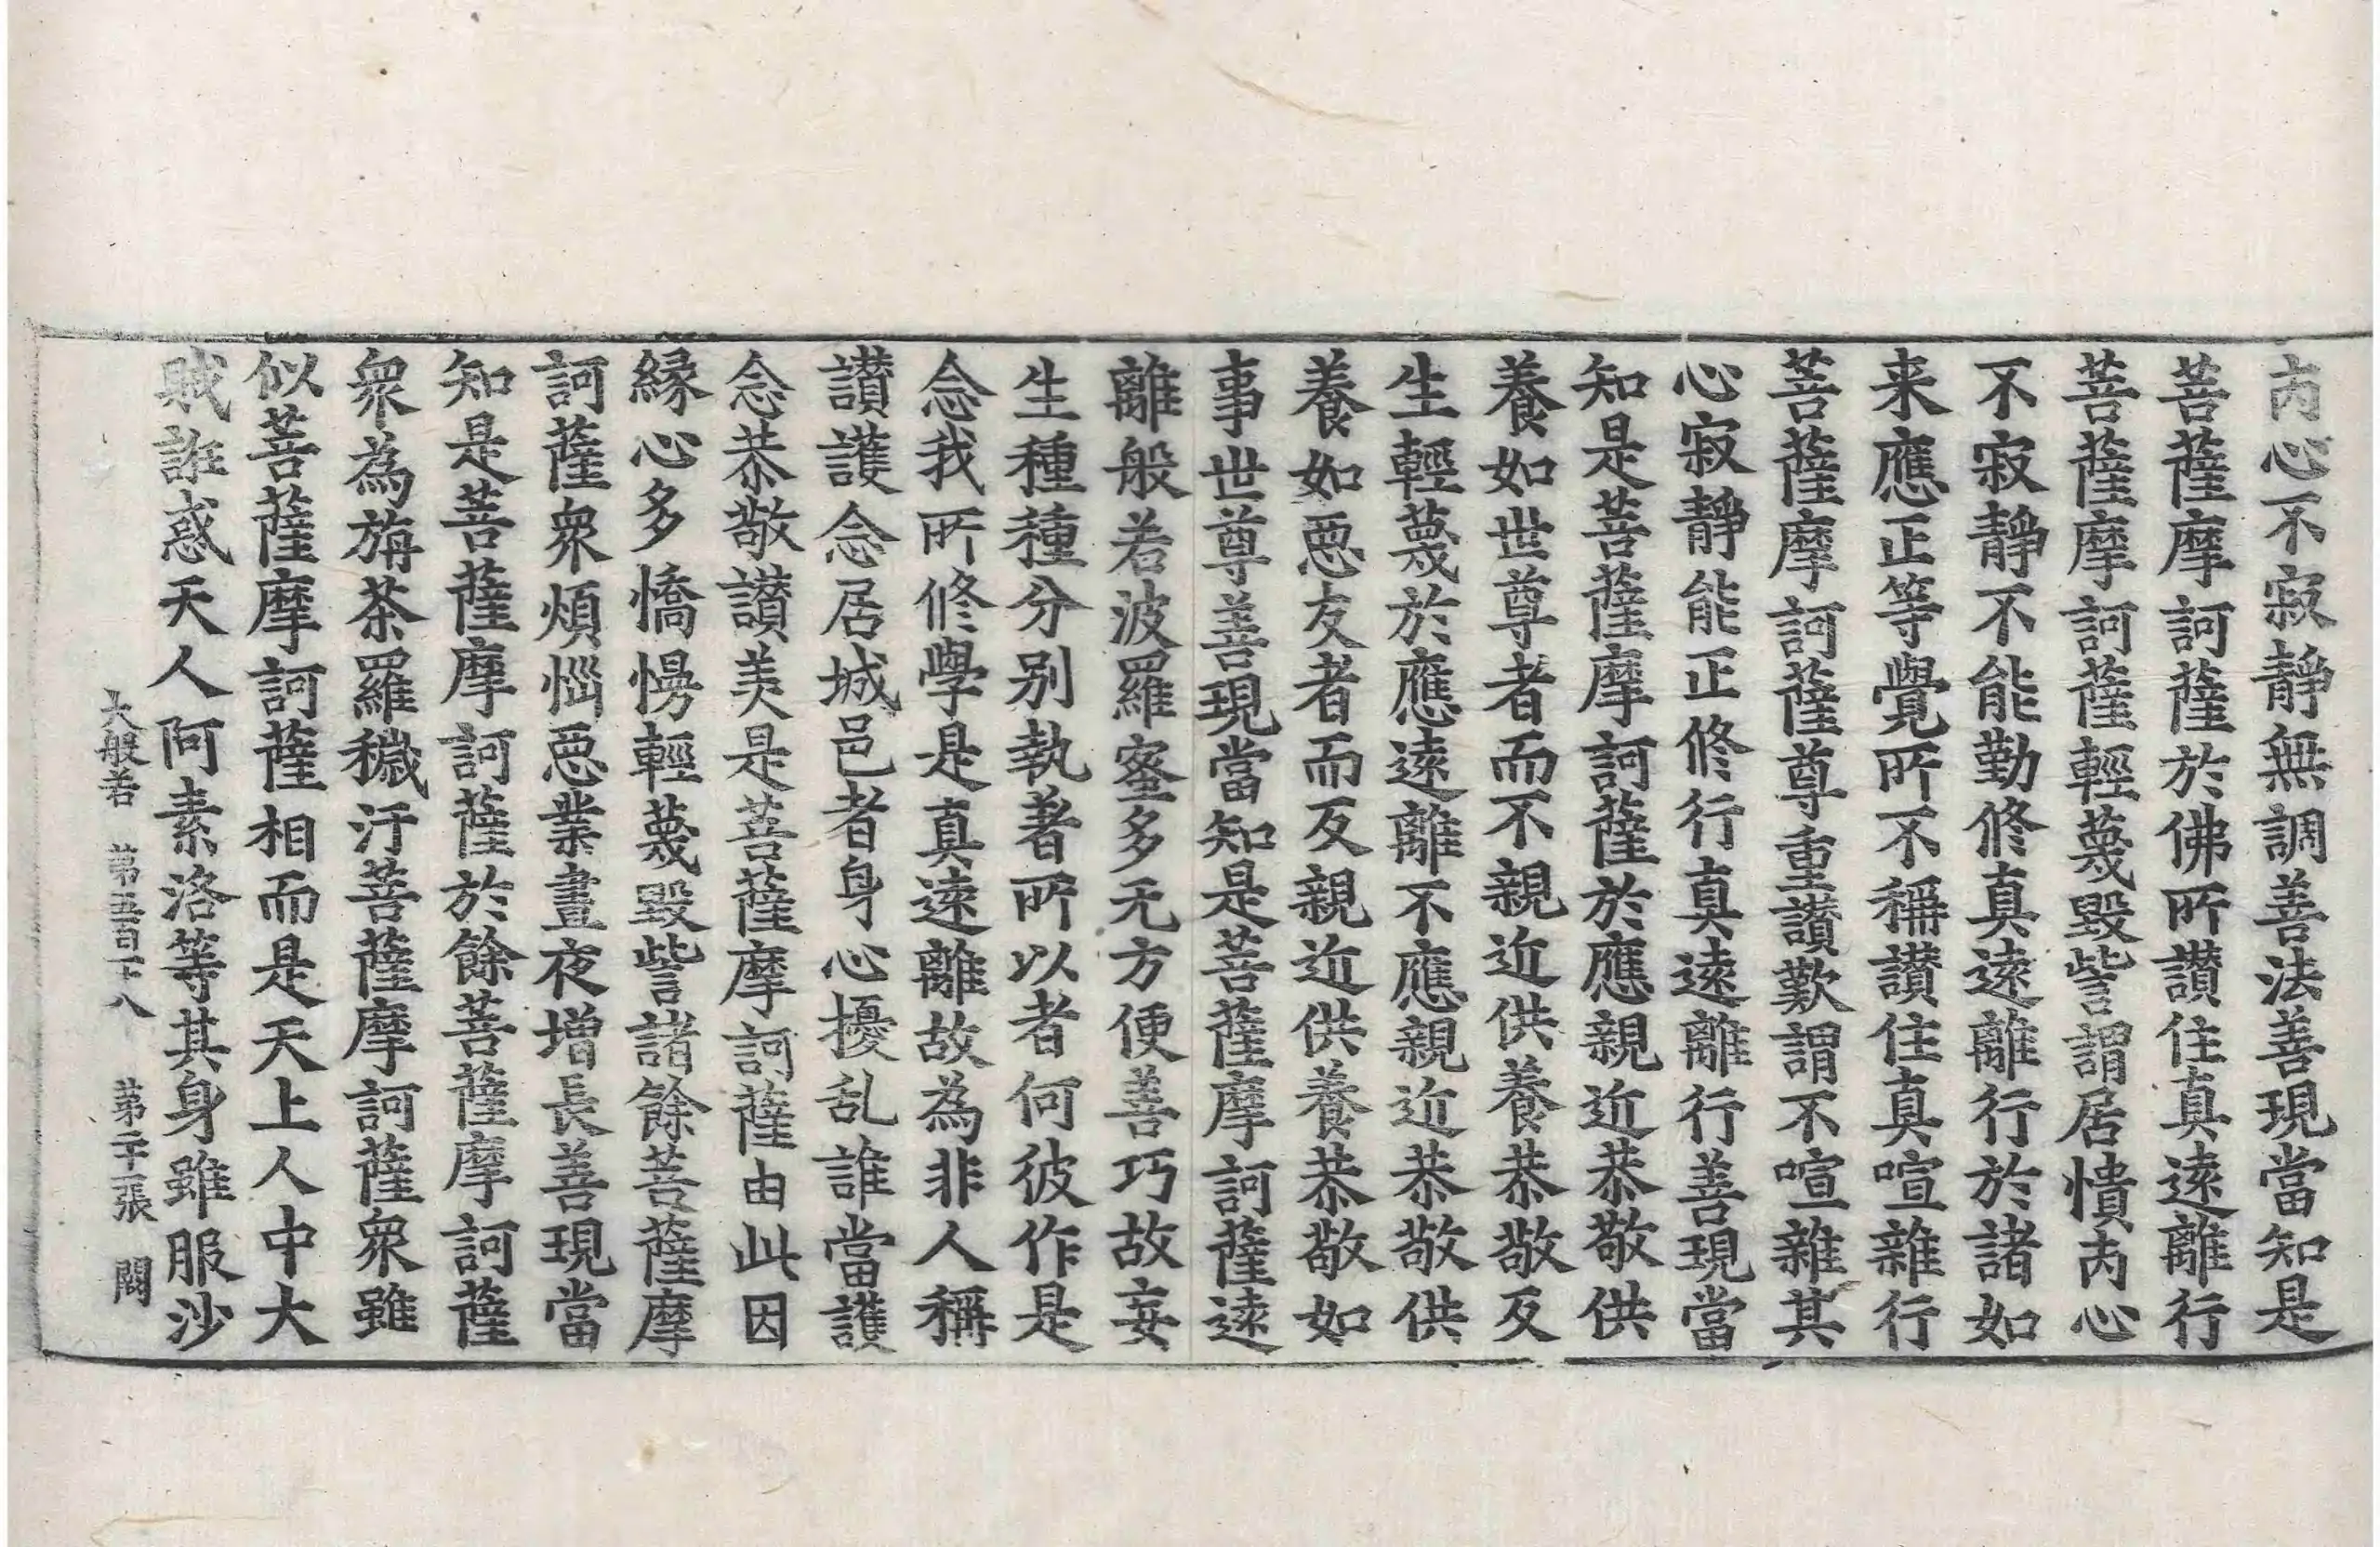 内心不寂靜無調善法善現當知是
菩薩摩訶薩於佛所讃住真遠離行
菩薩摩訶薩輕蔑毀訾謂居憒内心
不寂靜不能勤修真遠離行於諸如
来應正等覺所不稱讃住真喧雜行
菩薩摩訶薩尊重讃歎謂不喧雜其
心寂靜能正修行真遠離行善現當
知是菩薩摩訶薩於應親近恭敬供
養如世尊者而不親近供養恭敬反
生輕蔑於應遠離不應親近恭敬供
養如惡友者而反親近供養恭敬如
事世尊善現當知是菩薩摩訶薩遠
離般若波羅蜜多无方便善巧故妄
生種種分别執著所以者何彼作是
念我所修學是真遠離故為非人稱
讃護念居城邑者身心擾乱誰當護
念恭敬讃美是菩薩摩訶薩由此因
縁心多憍慢輕蔑毀訾諸餘菩薩摩
訶薩衆煩惱惡業晝夜増長善現當
知是菩薩摩訶薩於餘菩薩摩訶薩
衆為旃荼羅穢汙菩薩摩訶薩衆雖
似菩薩摩訶薩相而是天上人中大
賊誑惑天人阿素洛等其身雖服沙
大般若 第五百一十八 第二十一張 闕